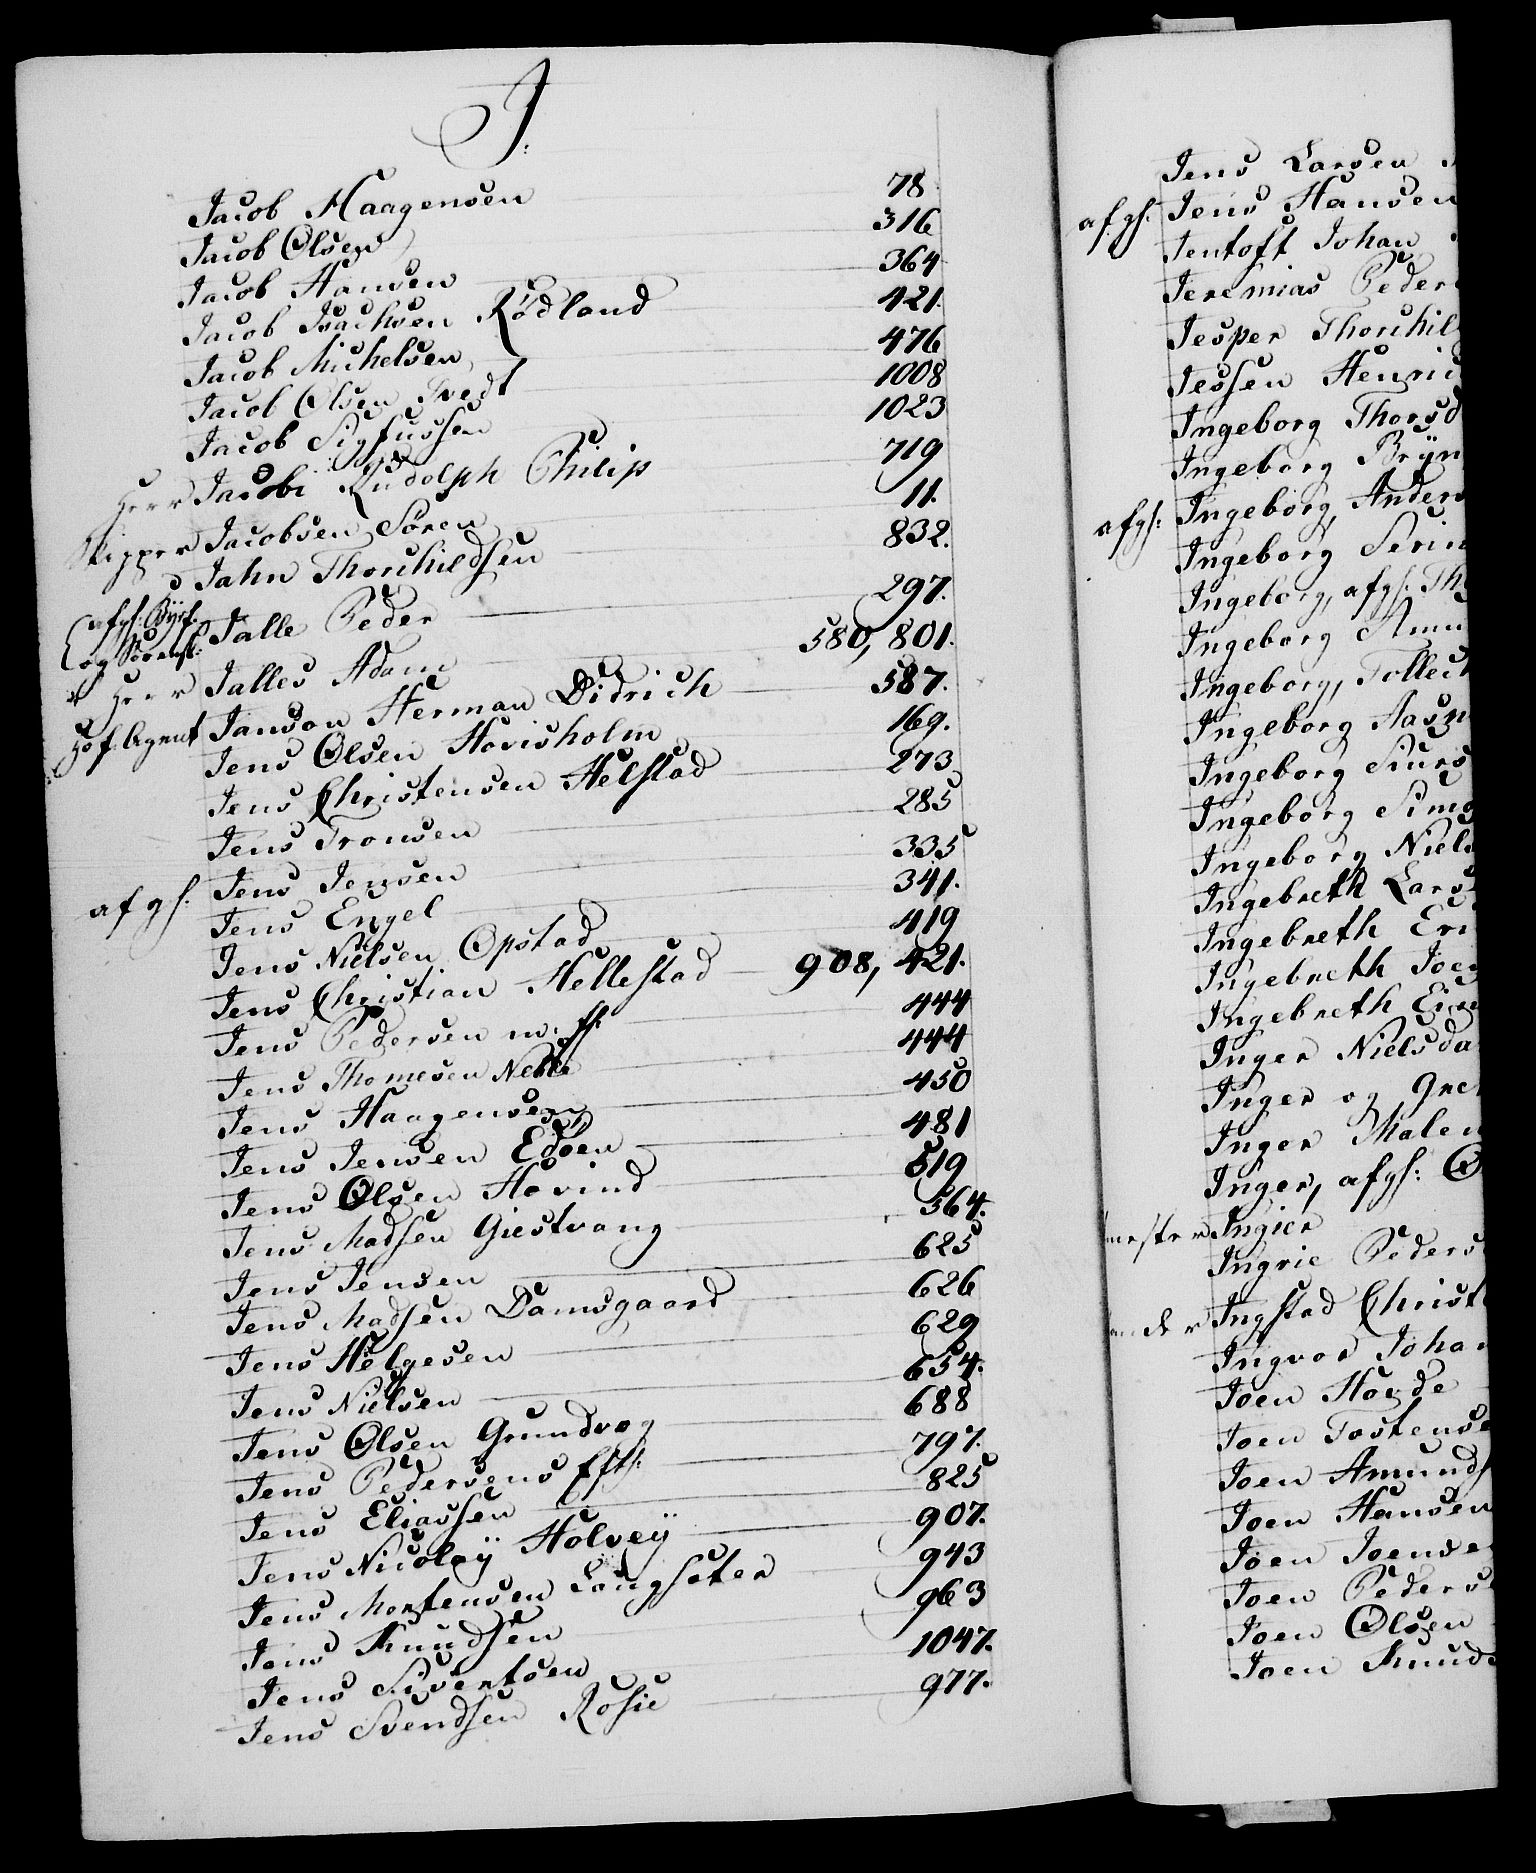 J:
Jacob Haagensen 78
Jacob Olsen 316
Jacob Hansen 364
Jacob Isachsen Rødland 421.
Jacob Michelsen 476
Jacob Olsen Tvedt 1008
Jacob Sigfussen 1023
Herr Jacobi Rudolph Philip 719
Skipper Jacobsen Sören 11.
Jahn Thorchildsen 832.
afgs. Byef. og Sorensk: Jalle Peder 297.
Herr Jalles Adam 580, 801.
Hof Agent Janson Herman Didrich 587.
Jens Olsen Hovisholm 169.
Jens Christensen Helstad 273
Jens Tronsen 285
afgs. Jens Jensen 335
Jens Engel 341.
Jens Nielsen Opstad 419
Jens Christian Hellestad 908, 421.
Jens Pedersen m: ff. 444
Jens Thomesen Neble 444
Jens Haagensen 450
Jens Jensen Edøen 481
Jens Olsen Hovind 519
Jens Madsen Giestvang 564.
Jens Jensen 625
Jens Madsen Damsgaard 626
Jens Helgesen 629
Jens Nielsen 654.
Jens Olsen Grundvog 688
Jens Pedersens Efts: 797.
Jens Eliassen 825
Jens Nicolay Holvey 907.
Jens Mortensen Langsæter 943
Jens Knudsen 963
Jens Sivertsen 1047.
Jens Svendsen Rosie 977.
Jens Larsen
afgs. Jens Hansen
Jentoft Johan
Jeremias Peder
Jesper Thorchil
Jessen Henric
Ingeborg Thorsd
Ingeborg Bryn
afgs: Ingeborg, Anders
Ingeborg Serin
Ingeborg, afgs: Th
Ingeborg Amu
Ingeborg, Tollec
Ingeborg Aasm
Ingeborg Siurs
Ingeborg Simo
Ingeborg Niels
Ingebreth Lars
Ingebreth Eri
Ingebreth Joen
Ingebreth Ein
Inger Nielsda
Inger og Gre
Inger Malen
Inger, afgs: O
mester Ingier
Ingrie Peders
Ingstad Christ
Ingvor Johan
Joen Hovde
Joen Tostense
Joen Amunds
Joen Hansen
Joen Joense
Joen Peders
Joen Olsen
Joen Knuds